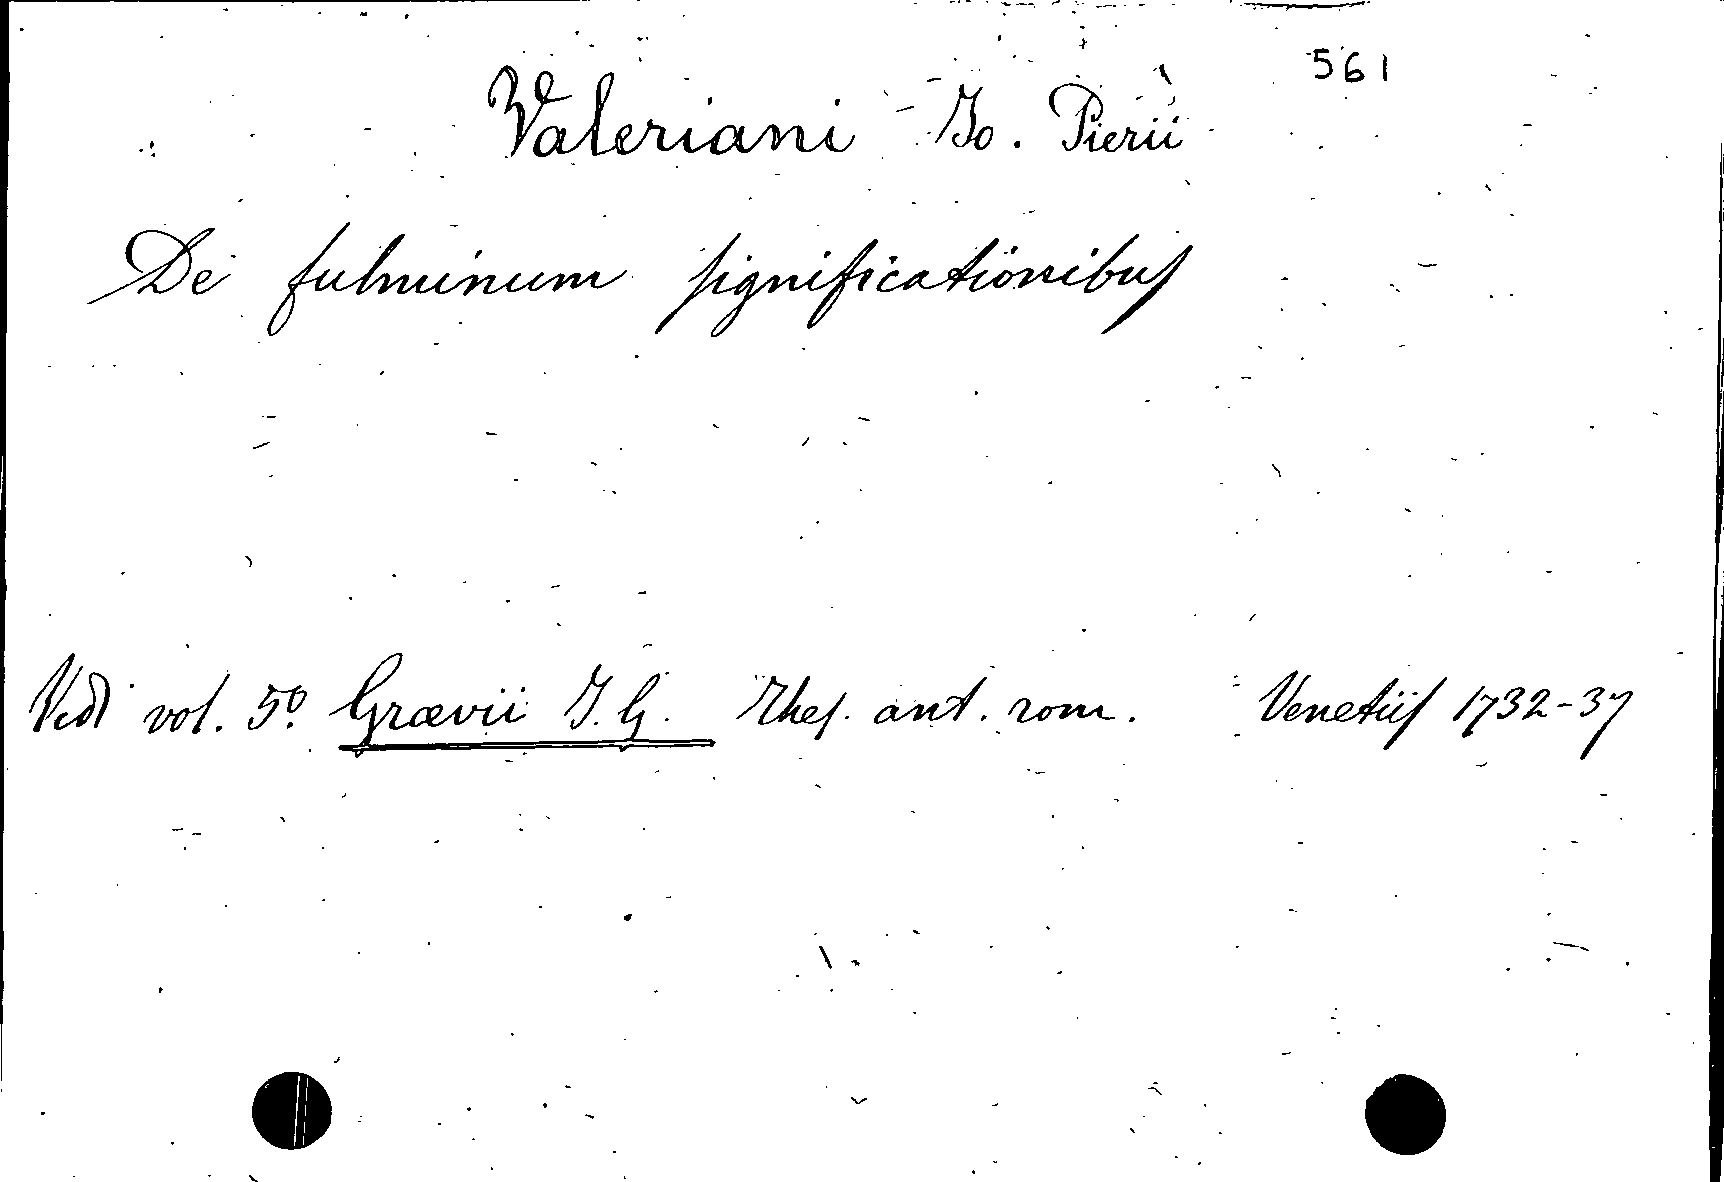 561
Valeriani Jo. Pierii
De fulminum significationibus
Vedi vol. 5º Grævii J. G. Thes. ant. rom. Venetiis 1732-37